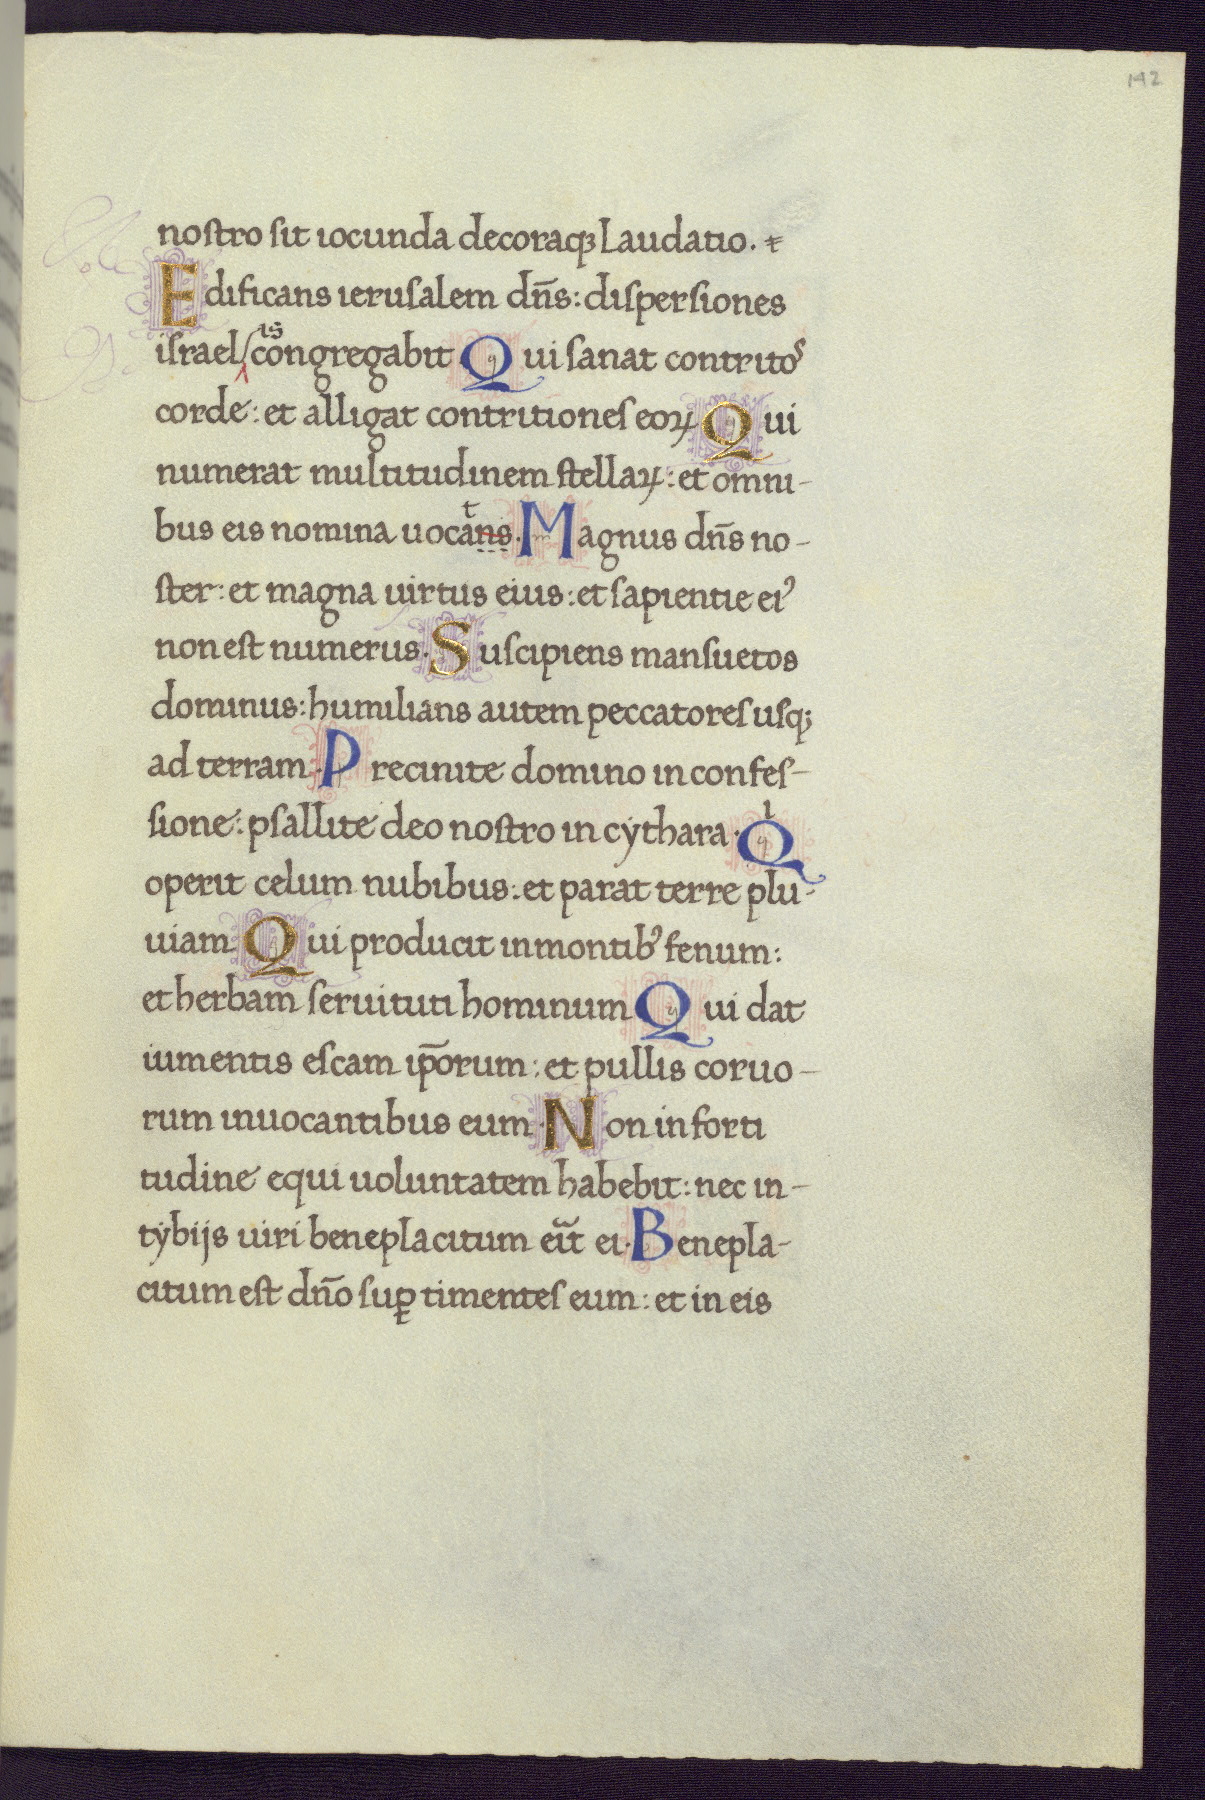 142
nostro sit iocunda decoraqꝫ laudatio.
Edificans ierusalem dn̄s: dispersiones
israel is congregabit Qui sanat contritos
corde: et alligat contritiones eoꝝ Qui
numerat multitudinem stellaꝝ: et omni-
bus eis nomina uocat ans. Magnus dn̄s no-
ster: et magna uirtus eius: et sapientie eiꝰ
non est numerus. Suscipiens mansuetos
dominus: humilians autem peccatores usqꝫ
ad terram. Precinite domino in confes-
sione: psallite deo nostro in cythara. Qi
operit celum nubibus: et parat terre plu-
uiam. Qui producit in montibꝰ fenum:
et herbam seruituti hominum Qui dat
iumentis escam ip̄orum: et pullis coruo-
rum inuocantibus eum. Non in forti
tudine equi uoluntatem habebit: nec in-
tybijs uiri beneplacitum eīt ei. Benepla-
citum est dn̄o suꝑ timentes eum: et in eis